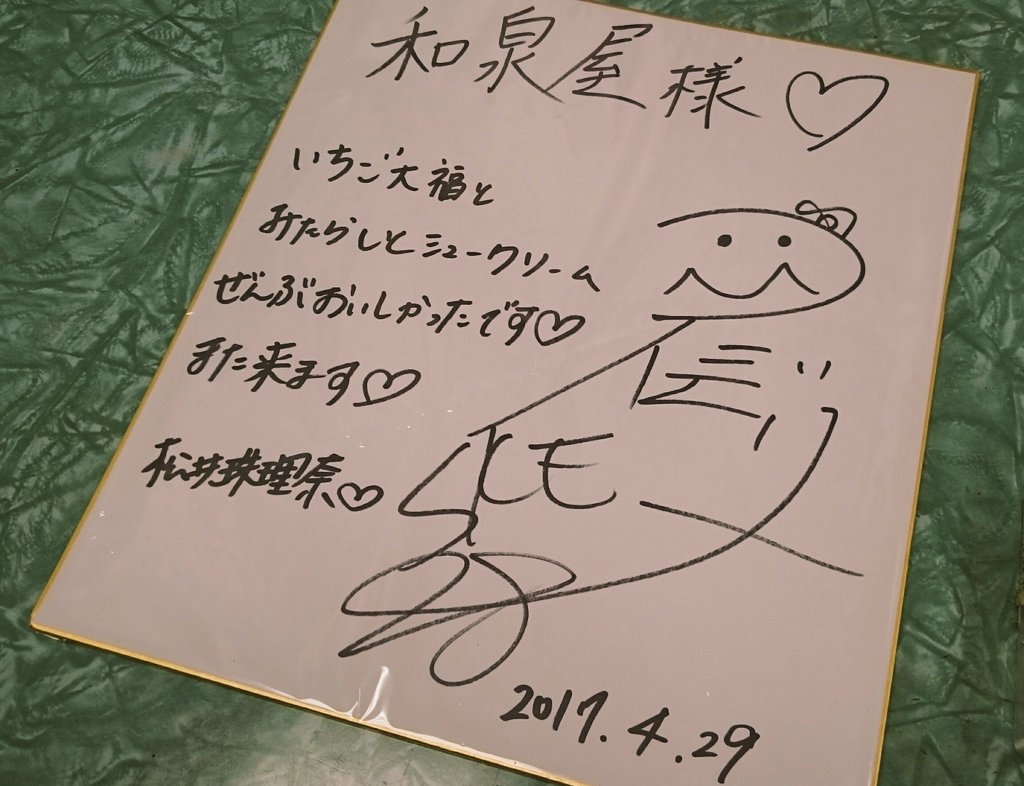 和泉屋様♡
いちご大福と
みたらしとシュークリーム
ぜんぶおいしかったです♡
また来ます♡
松井珠理奈♡
2017.4.29